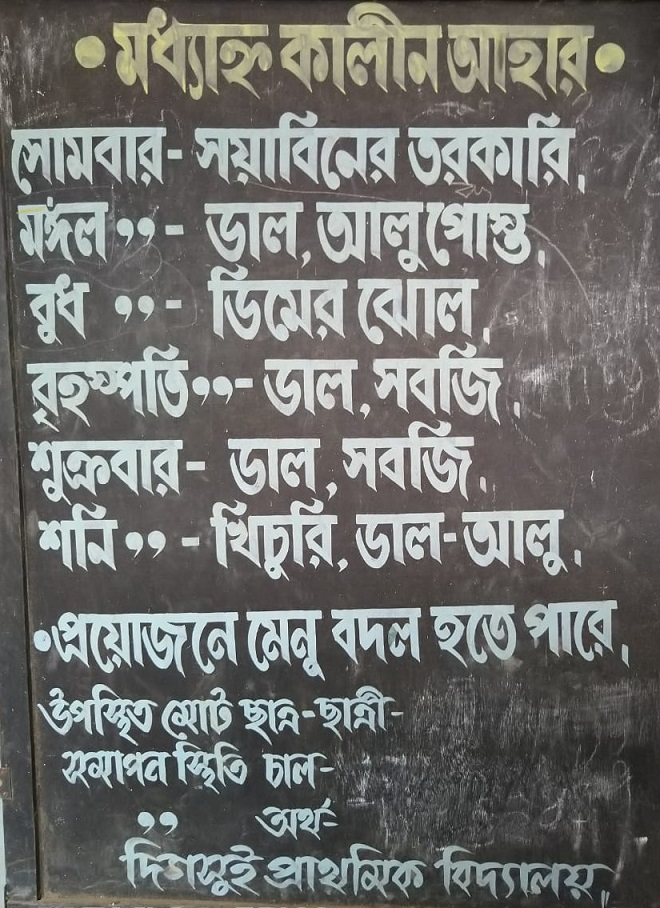 • মধ্যাহ্ন কালীন আহার •
সোমবার - সয়াবিনের তরকারি,
মঙ্গল ,, - ডাল, আলু পোস্ত,
বুধ ,, - ডিমের ঝোল,
বৃহস্পতি ,, - ডাল, সবজি,
শুক্রবার - ডাল, সবজি,
শনি ,, - খিচুরি, ডাল-আলু,
• প্রয়োজনে মেনু বদল হতে পারে,
উপস্থিত মোট ছাত্র-ছাত্রী-
সমাপন স্থিতি চাল-
,, অর্থ-
দিগসুই প্রাথমিক বিদ্যালয়,,